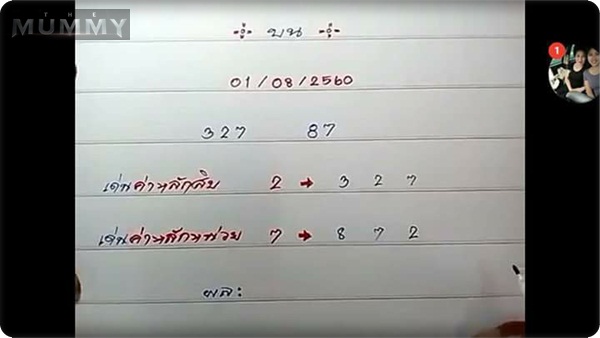 THE
MUMMY
บน
01/08/2560
327 87
1
เด่นค่าหลักสิบ 2 → 3 2 7
เด่นค่าหลักหน่วย 7 → 8 7 2
ผล: